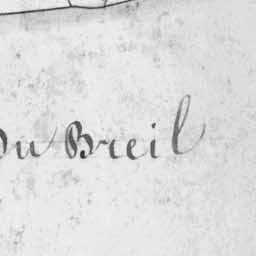 Du Breil